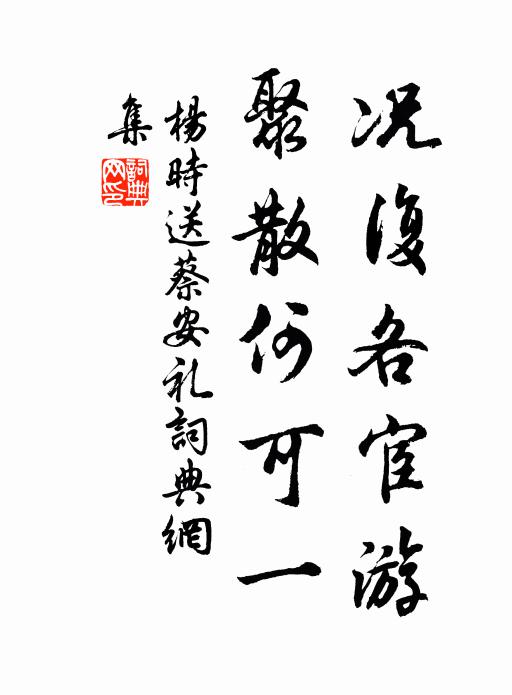 况復各宦游
聚散何可一
楊時送蔡安礼詞典網
集
詞典
网印